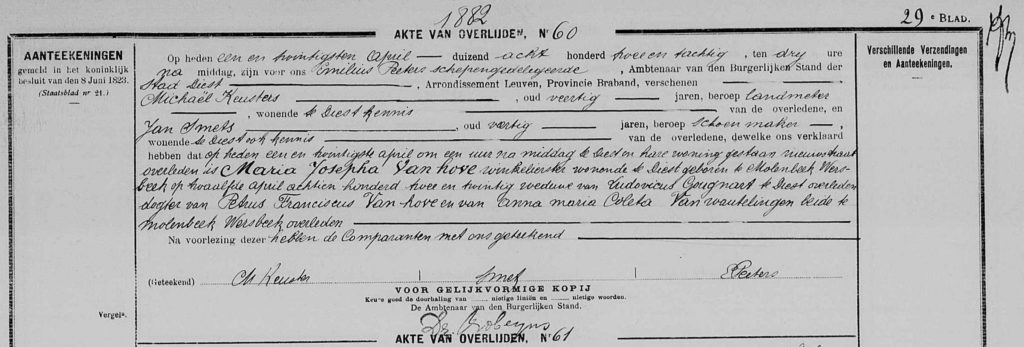 1882
29e BLAD.
AKTE VAN OVERLIJDEN, No 60
AANTEEKENINGEN
gemeld in het koninklijk
besluit van den 8 Juni 1823.
(Staatsblad nr 21.)
Verschillende Verzendingen
en Aanteekeningen.
Op heden een en twintigsten April duizend acht honderd twee en tachtig, ten dry ure
na middag, zijn voor ons Emilius Peeters schepengedelegeerde, Ambtenaar van den Burgerlijken Stand der
Stad Diest, Arrondissement Leuven, Provincie Braband, verschenen
Michaël Keusters, oud veertig jaren, beroep landmeter
, wonende te Diest kennis van de overledene, en
Jan Smets, oud veertig en jaren, beroep schoenmaker,
wonende te Diest ook kennis van de overledene, dewelke ons verklaard
hebben dat op heden een en twintigste april om een uur na middag te Diest in hare woning gestaan nieuwstraat
overleden is Maria Josepha Van hove winkelierster wonende te Diest geboren te Molenbeek Wers-
beek op twaalfde April achtien honderd twee en twintig weduwe van Ludovicus Gougnart te Diest overleden
dogter van Petrus Franciscus Van-hove en van Anna maria Coleta Van wautelingen beide te
molenbeek Wersbeek overleden
Na voorlezing dezer hebben de Comparanten met ons geteekend
(Geteekend) M Keusters Smets E Peeters
VOOR GELIJKVORMIGE KOPIJ
Keure goed de doorhaling van nietige liniën en nietige woorden.
De Ambtenaar van den Burgerlijken Stand.
Vergele.
AKTE VAN OVERLIJDEN, No 61